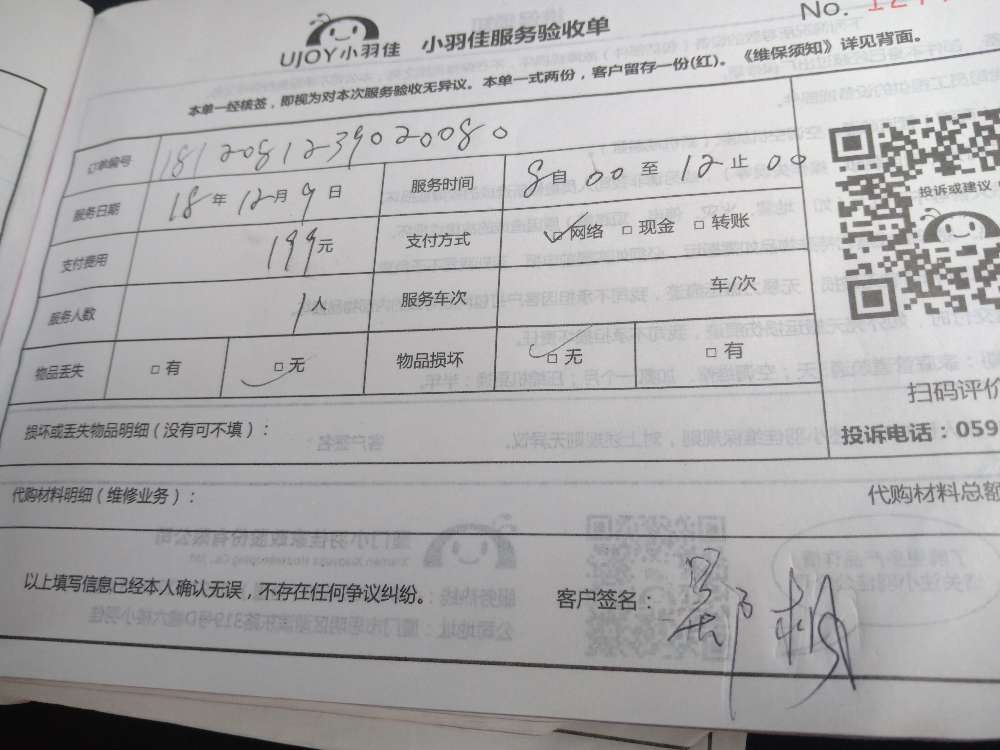 UJOY小羽佳 小羽佳服务验收单 No.
本单一经核签，即视为对本次服务验收无异议。本单一式两份，客户留存一份(红)。《维保须知》详见背面。
订单编号 1812081239020080
服务日期 18年12月9日 服务时间 8自00至12止00
支付费用 199元 支付方式 □网络 □现金 □转账
服务人数 1人 服务车次 车/次
物品丢失 □有 □无 物品损坏 □无 □有
投诉或建议
扫码评价
损坏或丢失物品明细（没有可不填）： 投诉电话：059
代购材料明细（维修业务）： 代购材料总额
以上填写信息已经本人确认无误，不存在任何争议纠纷。 客户签名：